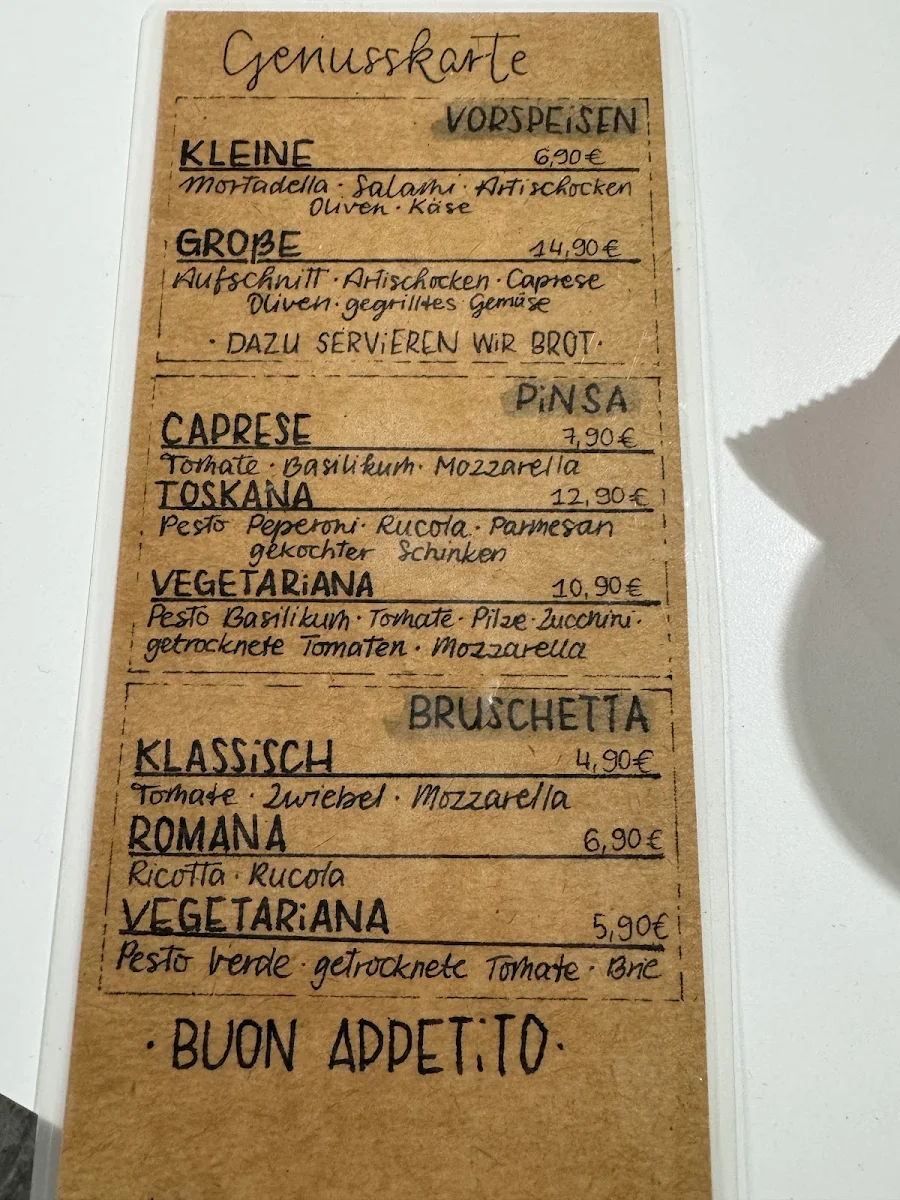 Genusskarte
VORSPEiSEN
KLEINE 6,90€
Mortadella · Salami · Artischocken
Oliven · Käse
GROßE 14,90€
Aufschnitt · Artischocken · Caprese
Oliven · gegrilltes Gemüse
· DAZU SERViEREN WiR BROT ·
PiNSA
CAPRESE 7,90€
Tomate · Basilikum · Mozzarella
TOSKANA 12,90€
Pesto Peperoni · Rucola · Parmesan
gekochter Schinken
VEGETARiANA 10,90€
Pesto Basilikum · Tomate · Pilze · Zucchini ·
getrocknete Tomaten · Mozzarella
BRUSCHETTA
KLASSiSCH 4,90€
Tomate · Zwiebel · Mozzarella
ROMANA 6,90€
Ricotta · Rucola
VEGETARiANA 5,90€
Pesto Verde · getrocknete Tomate · Brie
· BUON APPETiTO ·